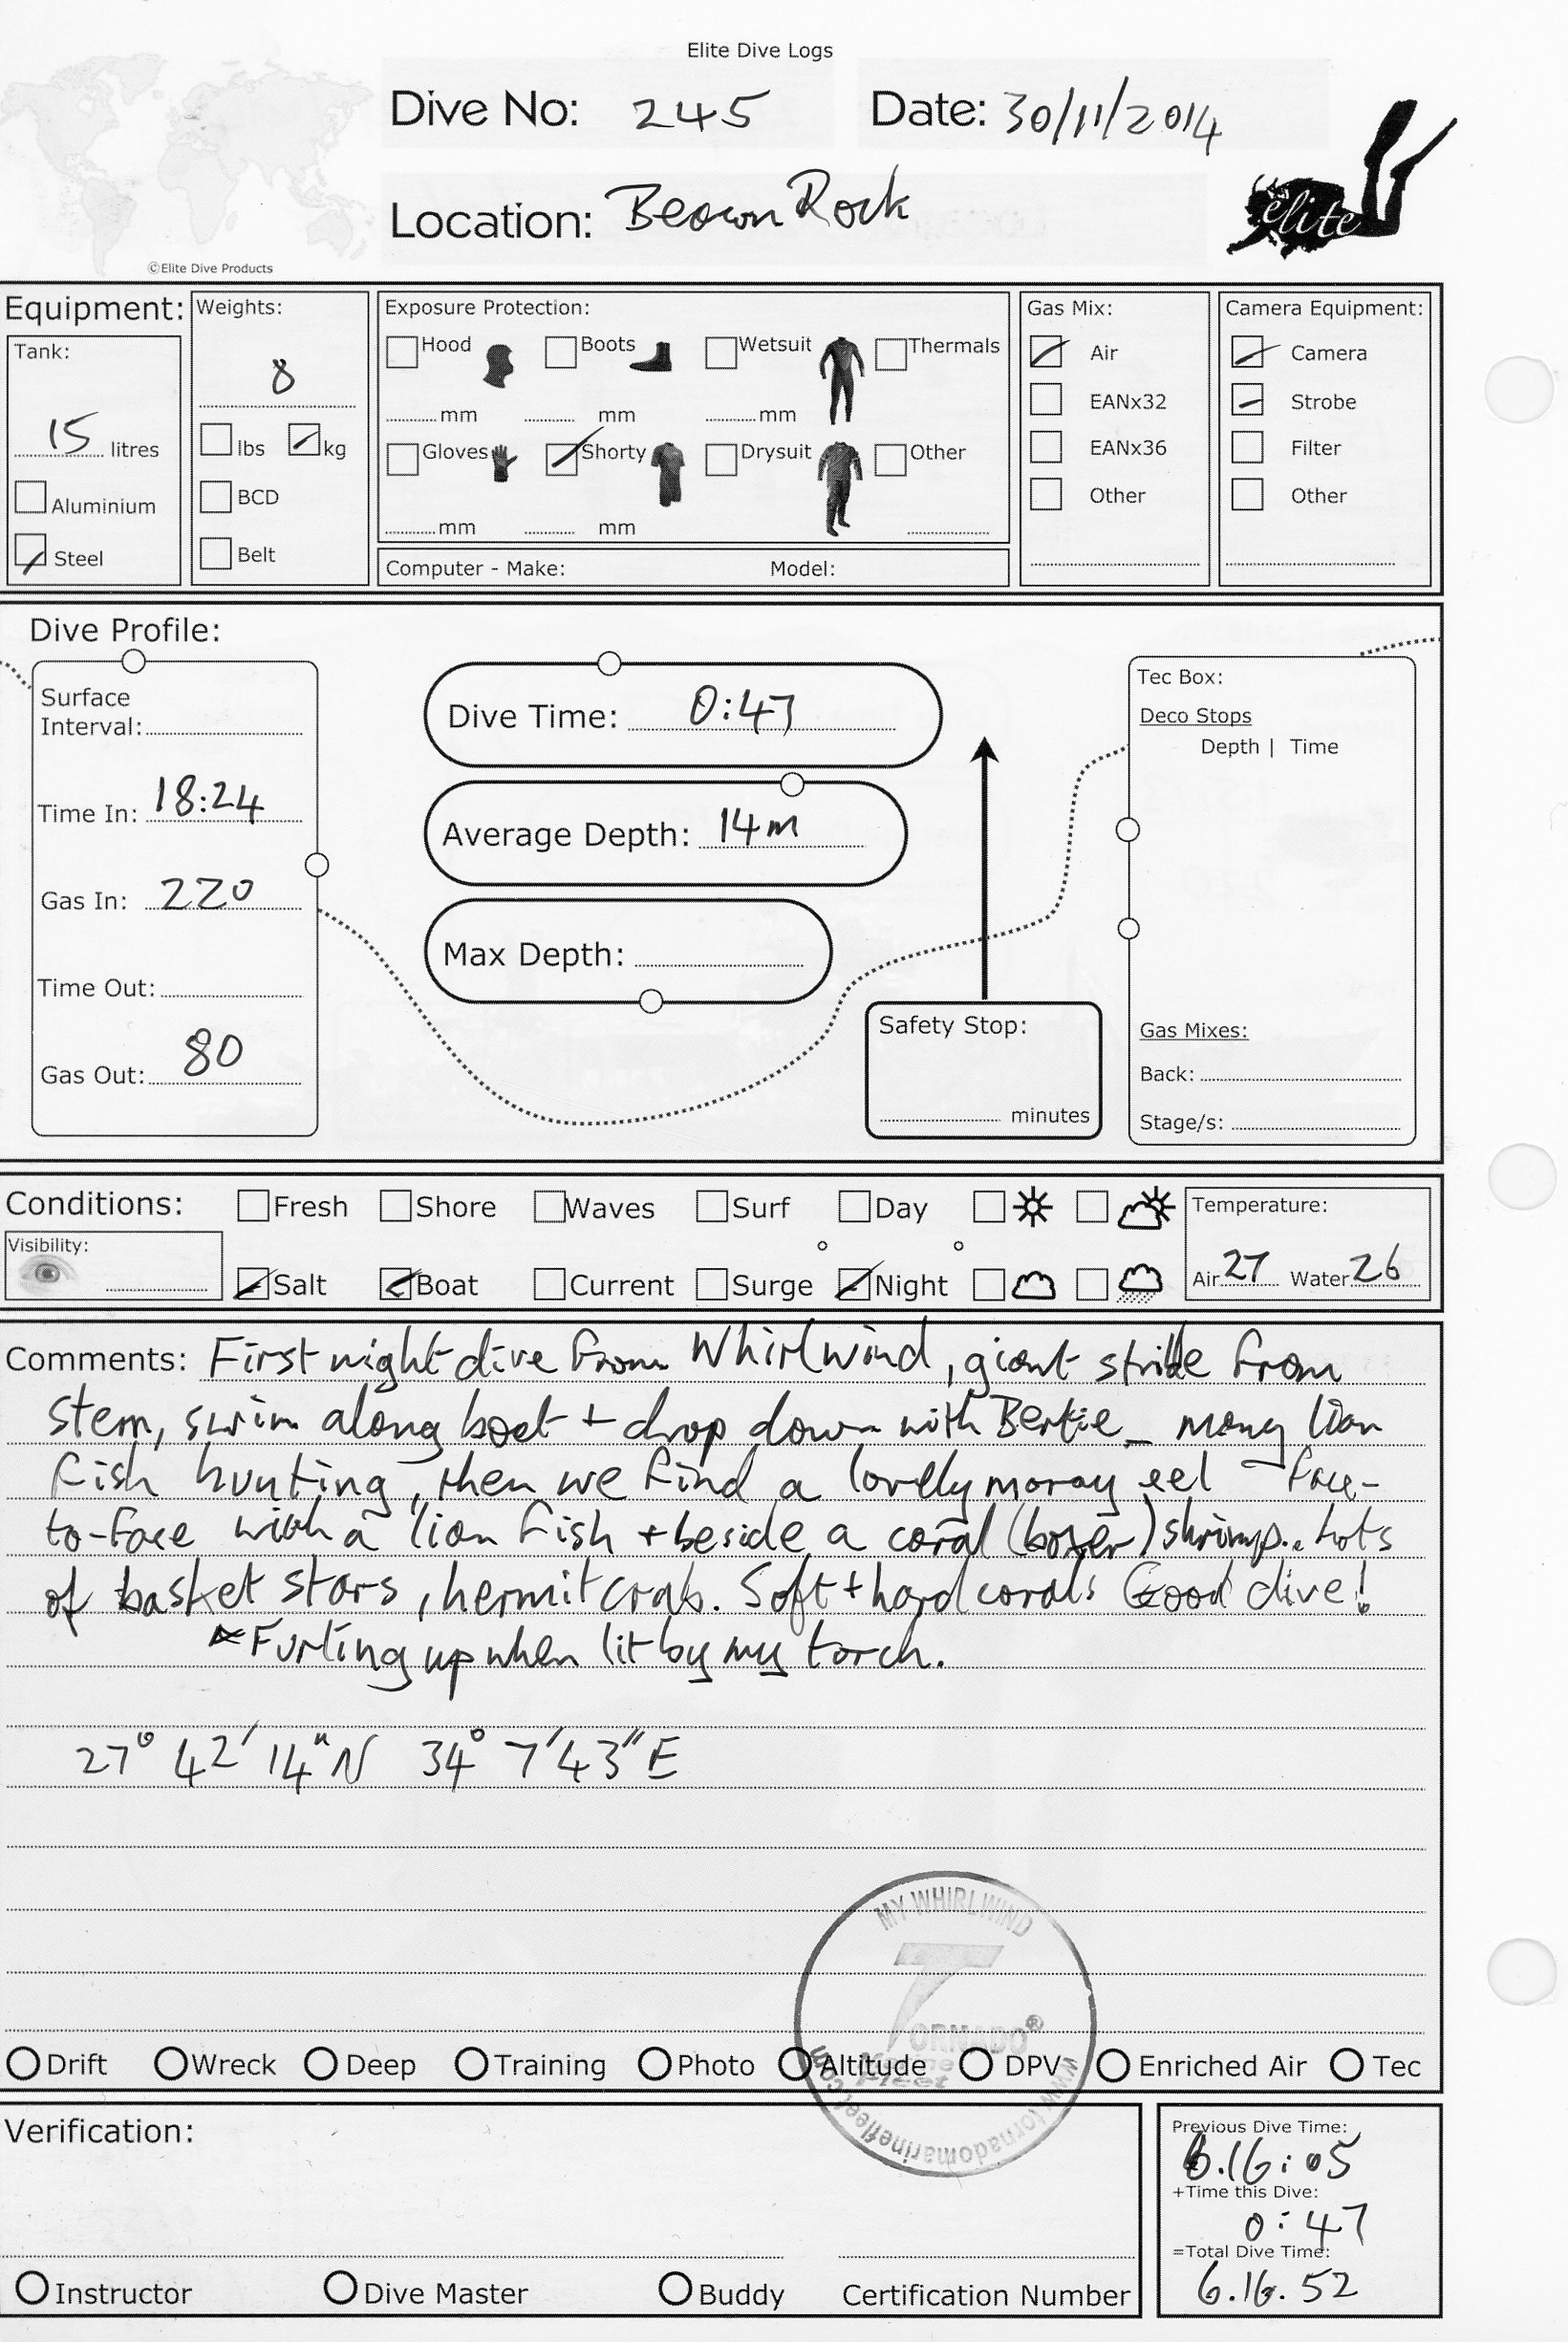 Elite Dive Logs
Dive No: 245 Date: 30/11/2014
Location: Beacon Rock
©Elite Dive Products
elite
Equipment:
Tank:
15 litres
Aluminium
Steel
Weights:
8
lbs kg
BCD
Belt
Exposure Protection:
Hood Boots Wetsuit Thermals
mm mm mm
Gloves Shorty Drysuit Other
mm mm
Computer - Make: Model:
Gas Mix:
Air
EANx32
EANx36
Other
Camera Equipment:
Camera
Strobe
Filter
Other
Dive Profile:
Surface
Interval:
Time In: 18:24
Gas In: 220
Time Out:
Gas Out: 80
Dive Time: 0:47
Average Depth: 14m
Max Depth:
Safety Stop:
minutes
Tec Box:
Deco Stops
Depth | Time
Gas Mixes:
Back:
Stage/s:
Conditions:
Fresh Shore Waves Surf Day
Visibility:
Salt Boat Current Surge Night
Temperature:
Air 27 Water 26
Comments: First night dive from Whirlwind, giant stride from
stern, swim along boat + drop down with Bertie _ many lion
fish hunting, then we find a lovely moray eel - face-
to-face with a lion fish + beside a coral (boxer) shrimp.. Lots
of basket stars, hermit crab. Soft + hard corals Good dive!
Furling up when lit by my torch.
27° 42' 14" N 34° 7' 43" E
MY WHIRLWIND
TORNADO®
Marine
Fleet
www.tornadomarinefleet.com
Drift Wreck Deep Training Photo Altitude DPV Enriched Air Tec
Verification:
Instructor Dive Master Buddy Certification Number
Previous Dive Time:
6.16:05
+Time this Dive:
0:47
=Total Dive Time:
6.16.52